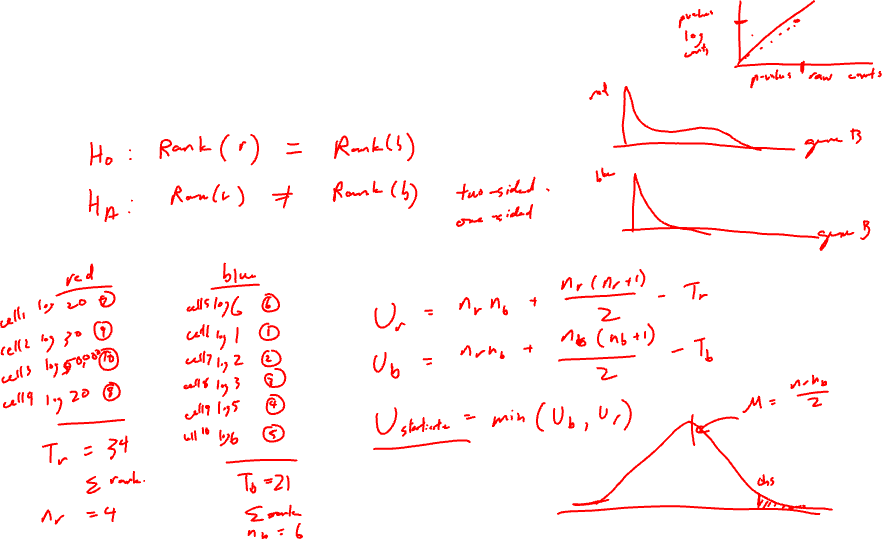 p-values
log
counts
p-values raw counts
red
gene B
blue
gene B
H₀ : Rank(r) = Rank(b)
H_A : Rank(r) ≠ Rank(b) two-sided.
one-sided
red
cell1 log 20
cell2 log 30 ⑨
cell3 log ⑩
cell4 log 20 ⑧
T_r = 34
Σ rank.
n_r = 4
blue
cell5 log 6 ⑥
cell log 1 ①
cell7 log 2 ②
cell8 log 3 ③
cell9 log 5 ④
cell 10 log 6 ⑤
T_b = 21
Σ rank
n_b = 6
U_r = n_r n_b + n_r (n_r+1) / 2 - T_r
U_b = n_r n_b + n_b (n_b+1) / 2 - T_b
U_statistic = min (U_b, U_r)
M = n_r n_b / 2
obs